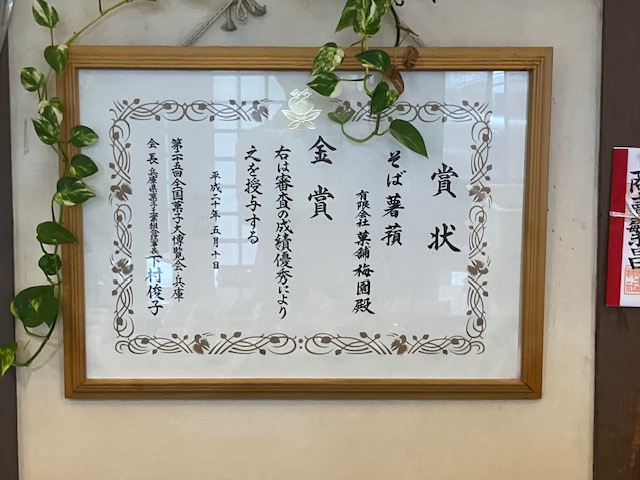 賞状
そば薯蕷
有限会社菓舗梅園殿
金賞
右は審査の成績優秀により
之を授与する
平成二十年五月十日
第二十五回全国菓子大博覧会・兵庫
会長 兵庫県菓子工業組合理事長 下村俊子
繁昌